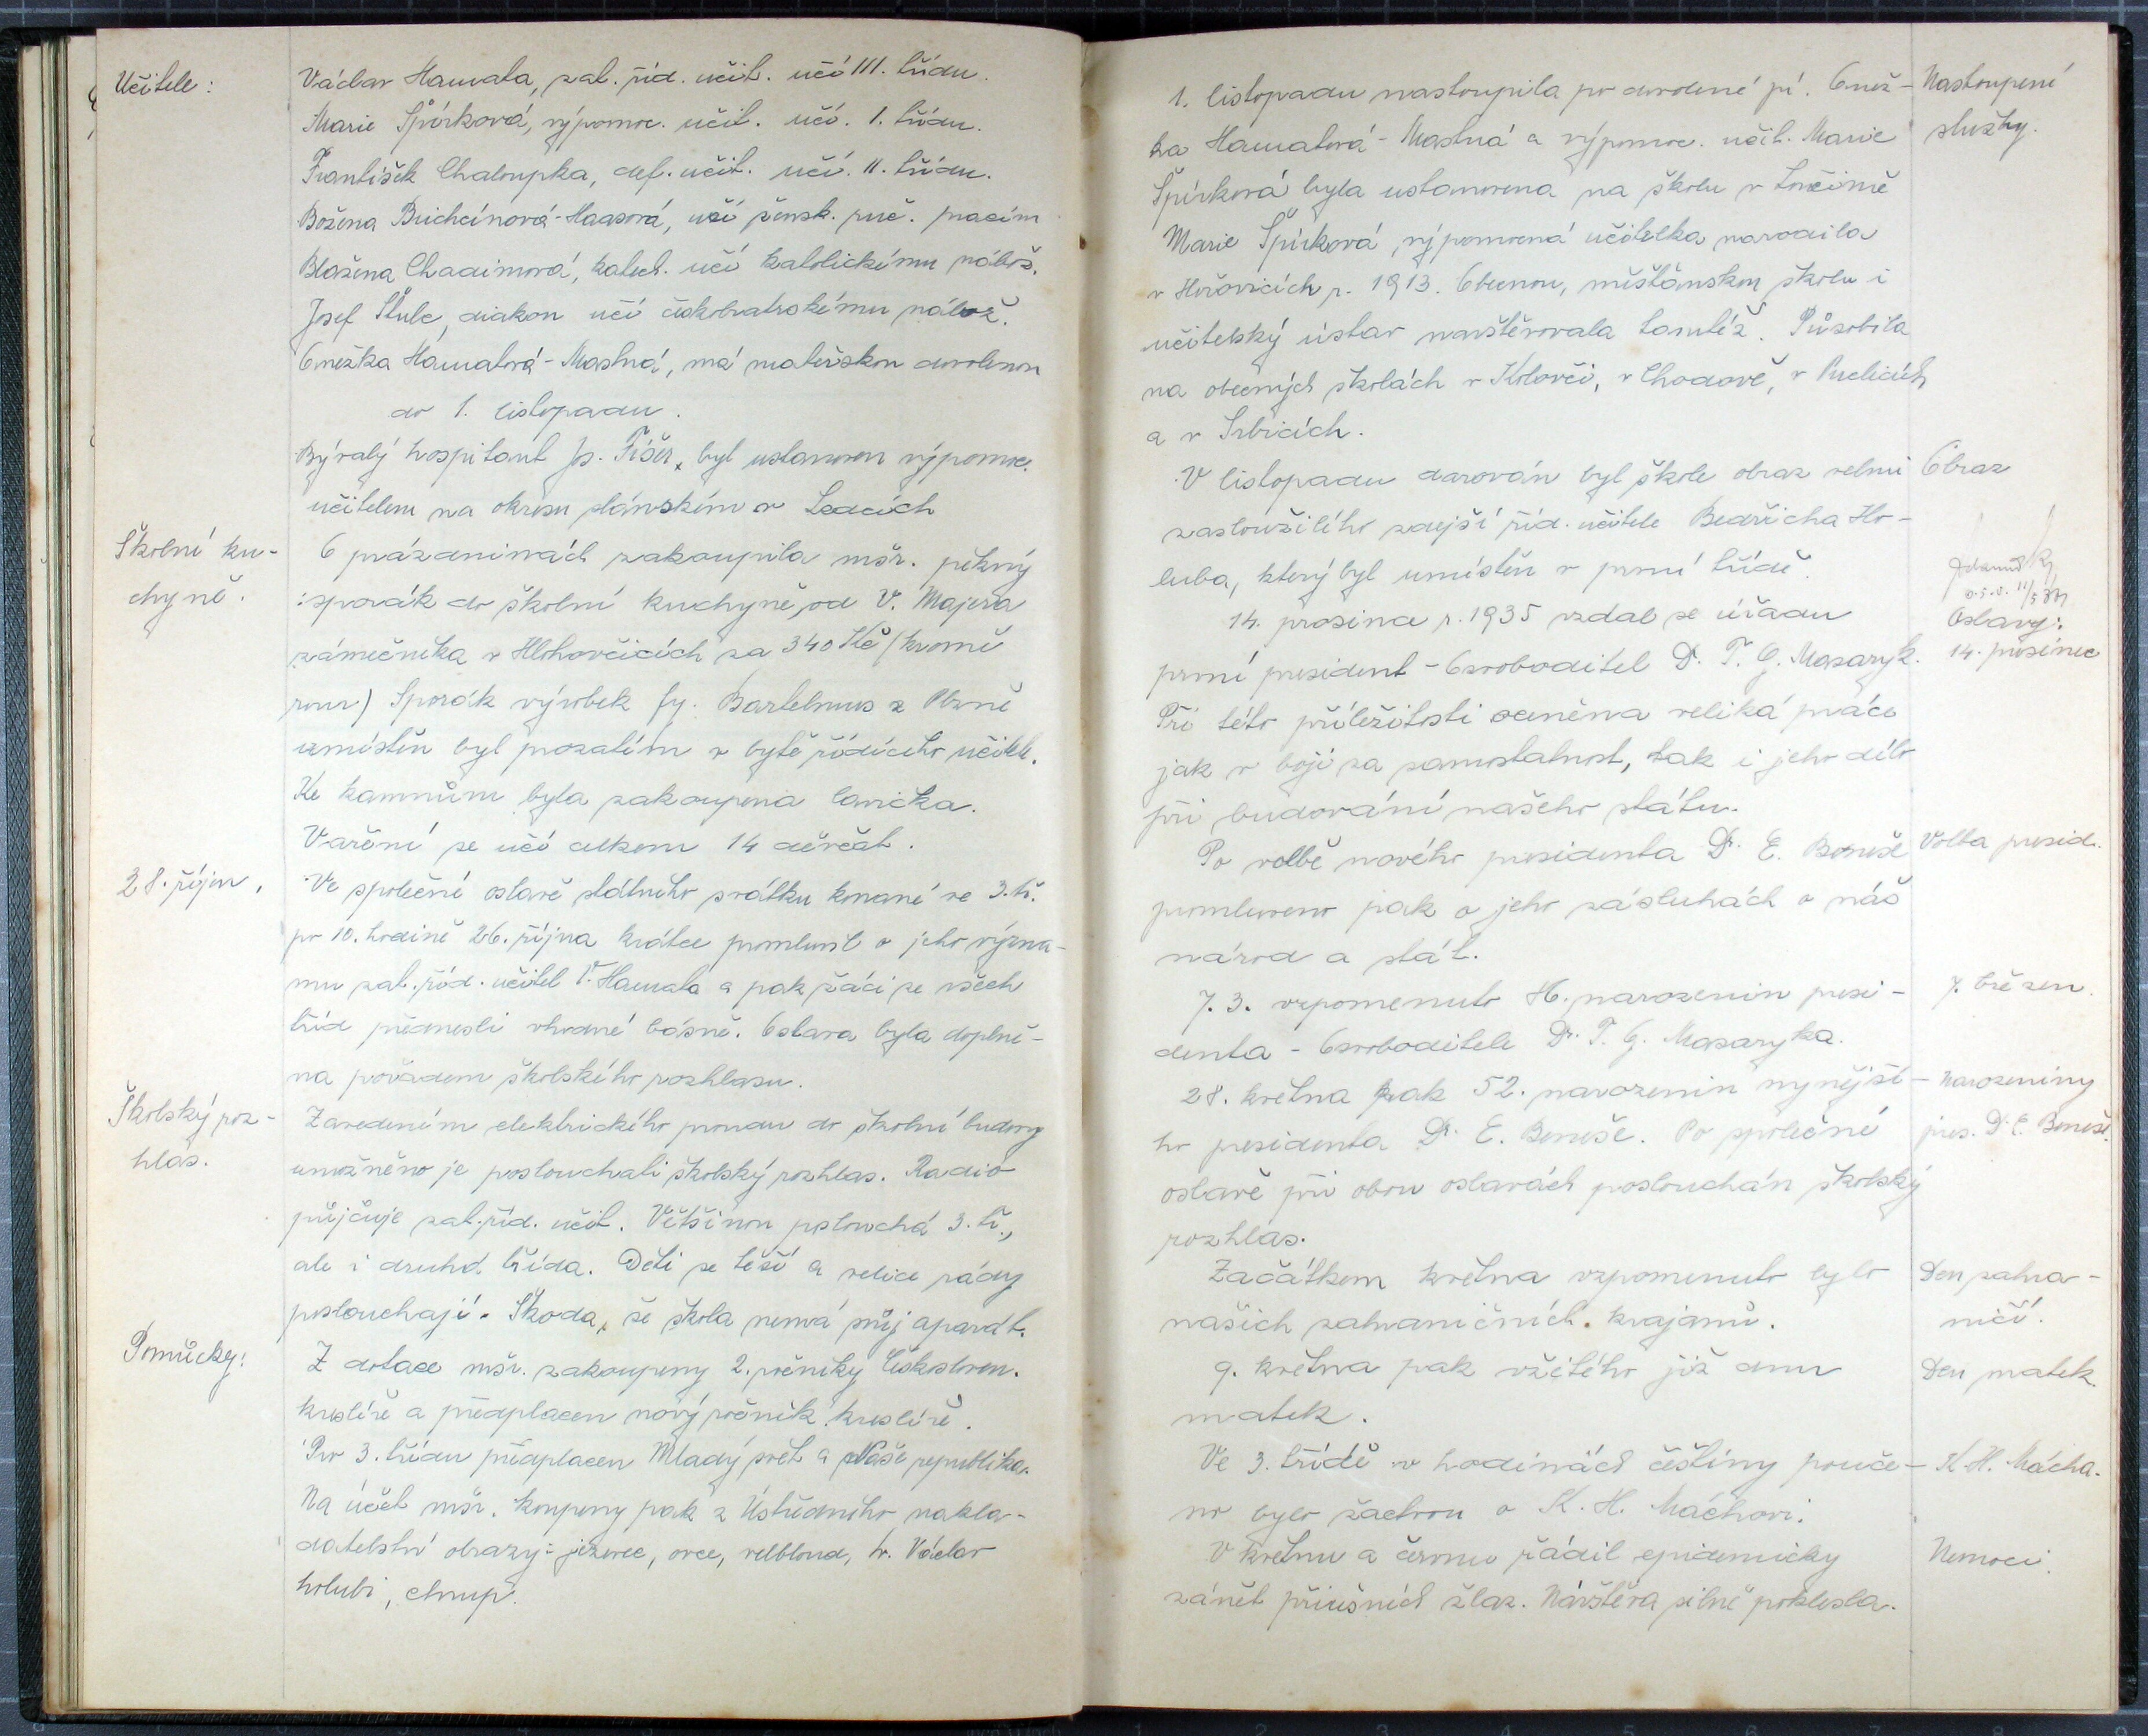 Učitele:
Václav Hamata, zat. říd. učit. učí III. třídu.
Marie Špírková, výpomoc. učit. učí. I. třídu.
František Chaloupka, def. učit. učí. II. třídu.
Božena Brichcínová-Haasová, učí žensk. ruč. pracím
Blažena Chadimová, katech. učí katolickému nábož.
Josef Štulc, diakon učí českobratrskému nábož.
Anežka Hamatová-Mastná, má mateřskou dovolenou
do 1. listopadu.
Bývalý hospitant Js. Fišer, byl ustanoven výpomoc.
učitelem na okresu slánském v Ledcích
Školní ku-
chyně.
O prázdninách zakoupila mšr. pěkný
sporák do školní kuchyně, od V. Majera
zámečníka v Hlohovčicích za 340 Kč (kromě
rour) Sporák výrobek fy. Bartelmus z Plzně
umístěn byl prozatím v bytě řídícího učitele.
Ke kamnům byla zakoupena lavička.
Vaření se učí celkem 14 děvčat.
28. říjen.
Ve společné oslavě státního svátku konané ve 3. tř.
po 10. hodině 26. října krátce promluvil o jeho význa-
mu zat. říd. učitel V. Hamata a pak žáci ze všech
tříd přednesli vhodné básně. Oslava byla doplně-
na pořadem školského rozhlasu.
Školský roz-
hlas.
Zavedením elektrického proudu do školní budovy
umožněno je poslouchati školský rozhlas. Radio
půjčuje zat. říd. učit. Většinou poslouchá 3. tř.,
ale i druhá třída. Děti se těší a velice rády
poslouchají. Škoda, že škola nemá svůj aparát.
Pomůcky:
Z dotace mšr. zakoupeny 2. ročníky Českosloven.
kreslíře a předplacen nový ročník kreslíře.
Pro 3. třídu předplacen Mladý svět a Naše republika.
Na účet mšr. koupeny pak z Ústředního nakla-
datelství obrazy: jezevec, ovce, velbloud, sv. Václav
holubi, chrup.
1. listopadu nastoupila po dovolené pí. Anež-
ka Hamatová-Mastná a výpomoc. učit. Marie
Špírková byla ustanovena na školu v Lověimě
Nastoupení
služby.
Marie Špírková, výpomocná učitelka narodila
v Hořovicích r. 1913. Obecnou, měšťanskou školu i
učitelský ústav navštěvovala tamtéž. Působila
na obecných školách v Kolovči, v Chodově, v Puclicích
a v Srbicích.
V listopadu darován byl škole obraz velmi
zasloužilého zdejší říd. učitele Bedřicha Ho-
luba, který byl umístěn v první třídě.
Obraz
14. prosince r. 1935 vzdal se úřadu
první president-Osvoboditel Dr. T. G. Masaryk.
Při této příležitosti oceněna veliká práce
jak v boji za samostatnost, tak i jeho dílo
při budování našeho státu.
Oslavy:
14. prosinec
Po volbě nového presidenta Dr. E. Beneše
promluveno pak o jeho zásluhách o náš
národ a stát.
Volba presid.
7. 3. vzpomenuto 86. narozenin presi-
denta-Osvoboditele Dr. T. G. Masaryka.
7. březen.
28. května pak 52. narozenin nynější-
ho presidenta Dr. E. Beneše. Po společné
oslavě při obou oslavách poslouchán školský
rozhlas.
Narozeniny
pres. Dr. E. Beneše.
Začátkem května vzpomenuto bylo
našich zahraničních krajanů.
Den zahra-
ničí.
9. května pak vžitého již dnu
matek.
Den matek.
Ve 3. třídě v hodinách češtiny pouče-
no bylo žactvo o K. H. Máchovi.
K. H. Mácha.
V květnu a červnu řádil epidemicky
zánět příušních žlaz. Návštěva silně poklesla.
Nemoci.